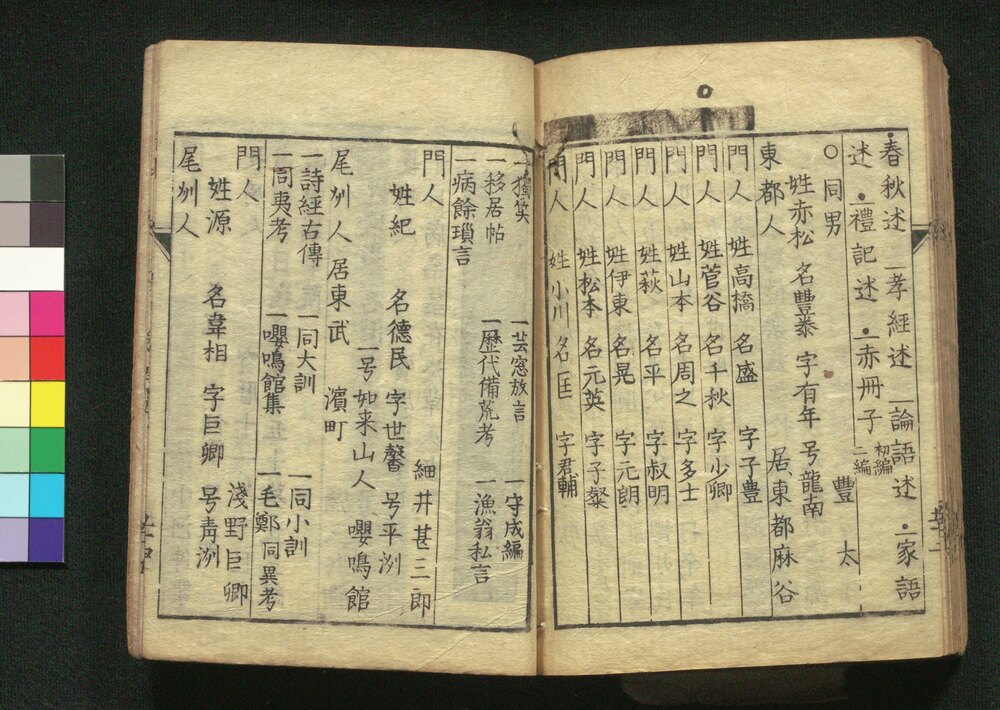 春秋述 一孝経述 一論語述 一家語
述 一禮記述 一赤冊子 初編二編
○同男 豊太
姓赤松 名豐泰 字有年 号龍南
東都人 居東都麻谷
門人 姓高橋 名盛 字子豊
門人 姓菅谷 名千秋 字少卿
門人 姓山本 名周之 字多士
門人 姓萩 名平 字叔明
門人 姓伊東 名晃 字元朗
門人 姓松本 名元英 字子粲
門人 姓小川 名匡 字君輔
一獨笑 一芸窓放言 一守成編
一移居帖 一歴代備荒考 一漁翁私言
一病餘瑣言
門人 細井甚三郎
姓紀 名德民 字世馨 号平洲
一号如来山人 嚶鳴館
尾刕人 居東武 濵町
一詩經古傳 一同大訓 一同小訓
一同夷考 一嚶鳴館集 一毛鄭同異考
門人 淺野巨卿
姓源 名韋相 字巨卿 号靑洲
尾刕人